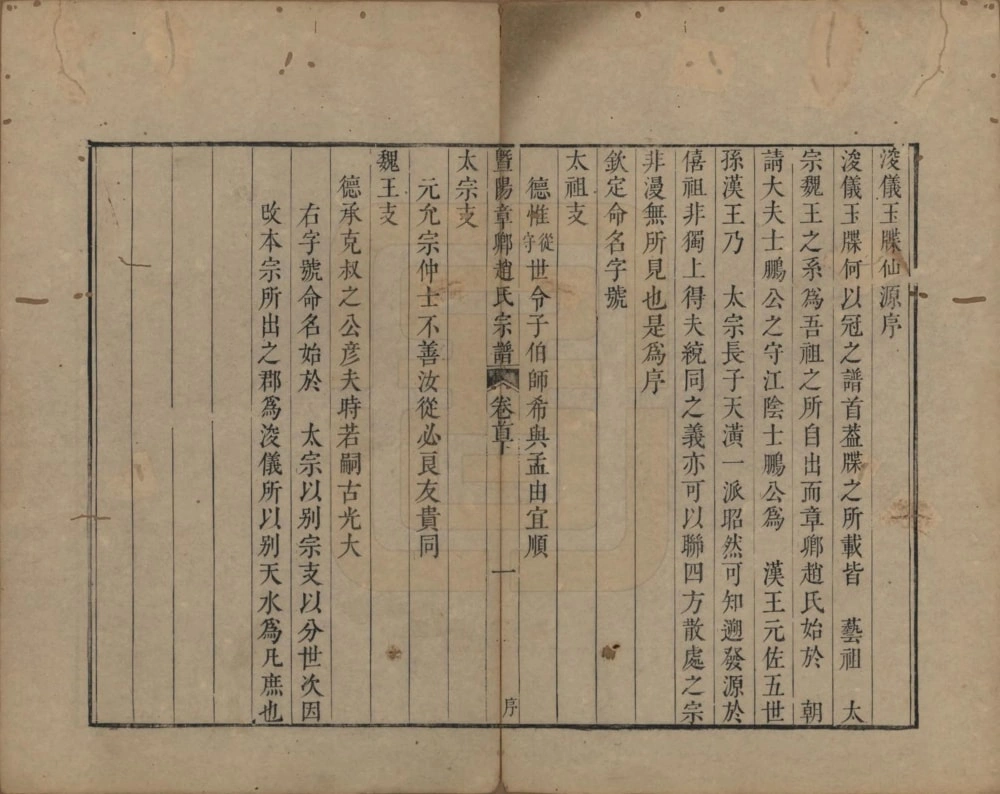 浚儀玉牒仙源序
浚儀玉牒何以冠之譜首葢牒之所載皆　藝祖　太
宗魏王之系爲吾祖之所自出而章鄉趙氏始於　朝
請大夫士鵬公之守江陰士鵬公爲　漢王元佐五世
孫漢王乃　太宗長子天潢一派昭然可知遡發源於
僖祖非獨上得夫統同之義亦可以聯四方散處之宗
非漫無所見也是爲序
欽定命名字號
太祖支
德惟從守世令子伯師希與孟由宜順
暨陽章鄉趙氏宗譜　卷首下　一　序
太宗支
元允宗仲士不善汝從必良友貴同
魏王支
德承克叔之公彥夫時若嗣古光大
右字號命名始於　太宗以别宗支以分世次因
攺本宗所出之郡爲浚儀所以别天水爲凡庶也